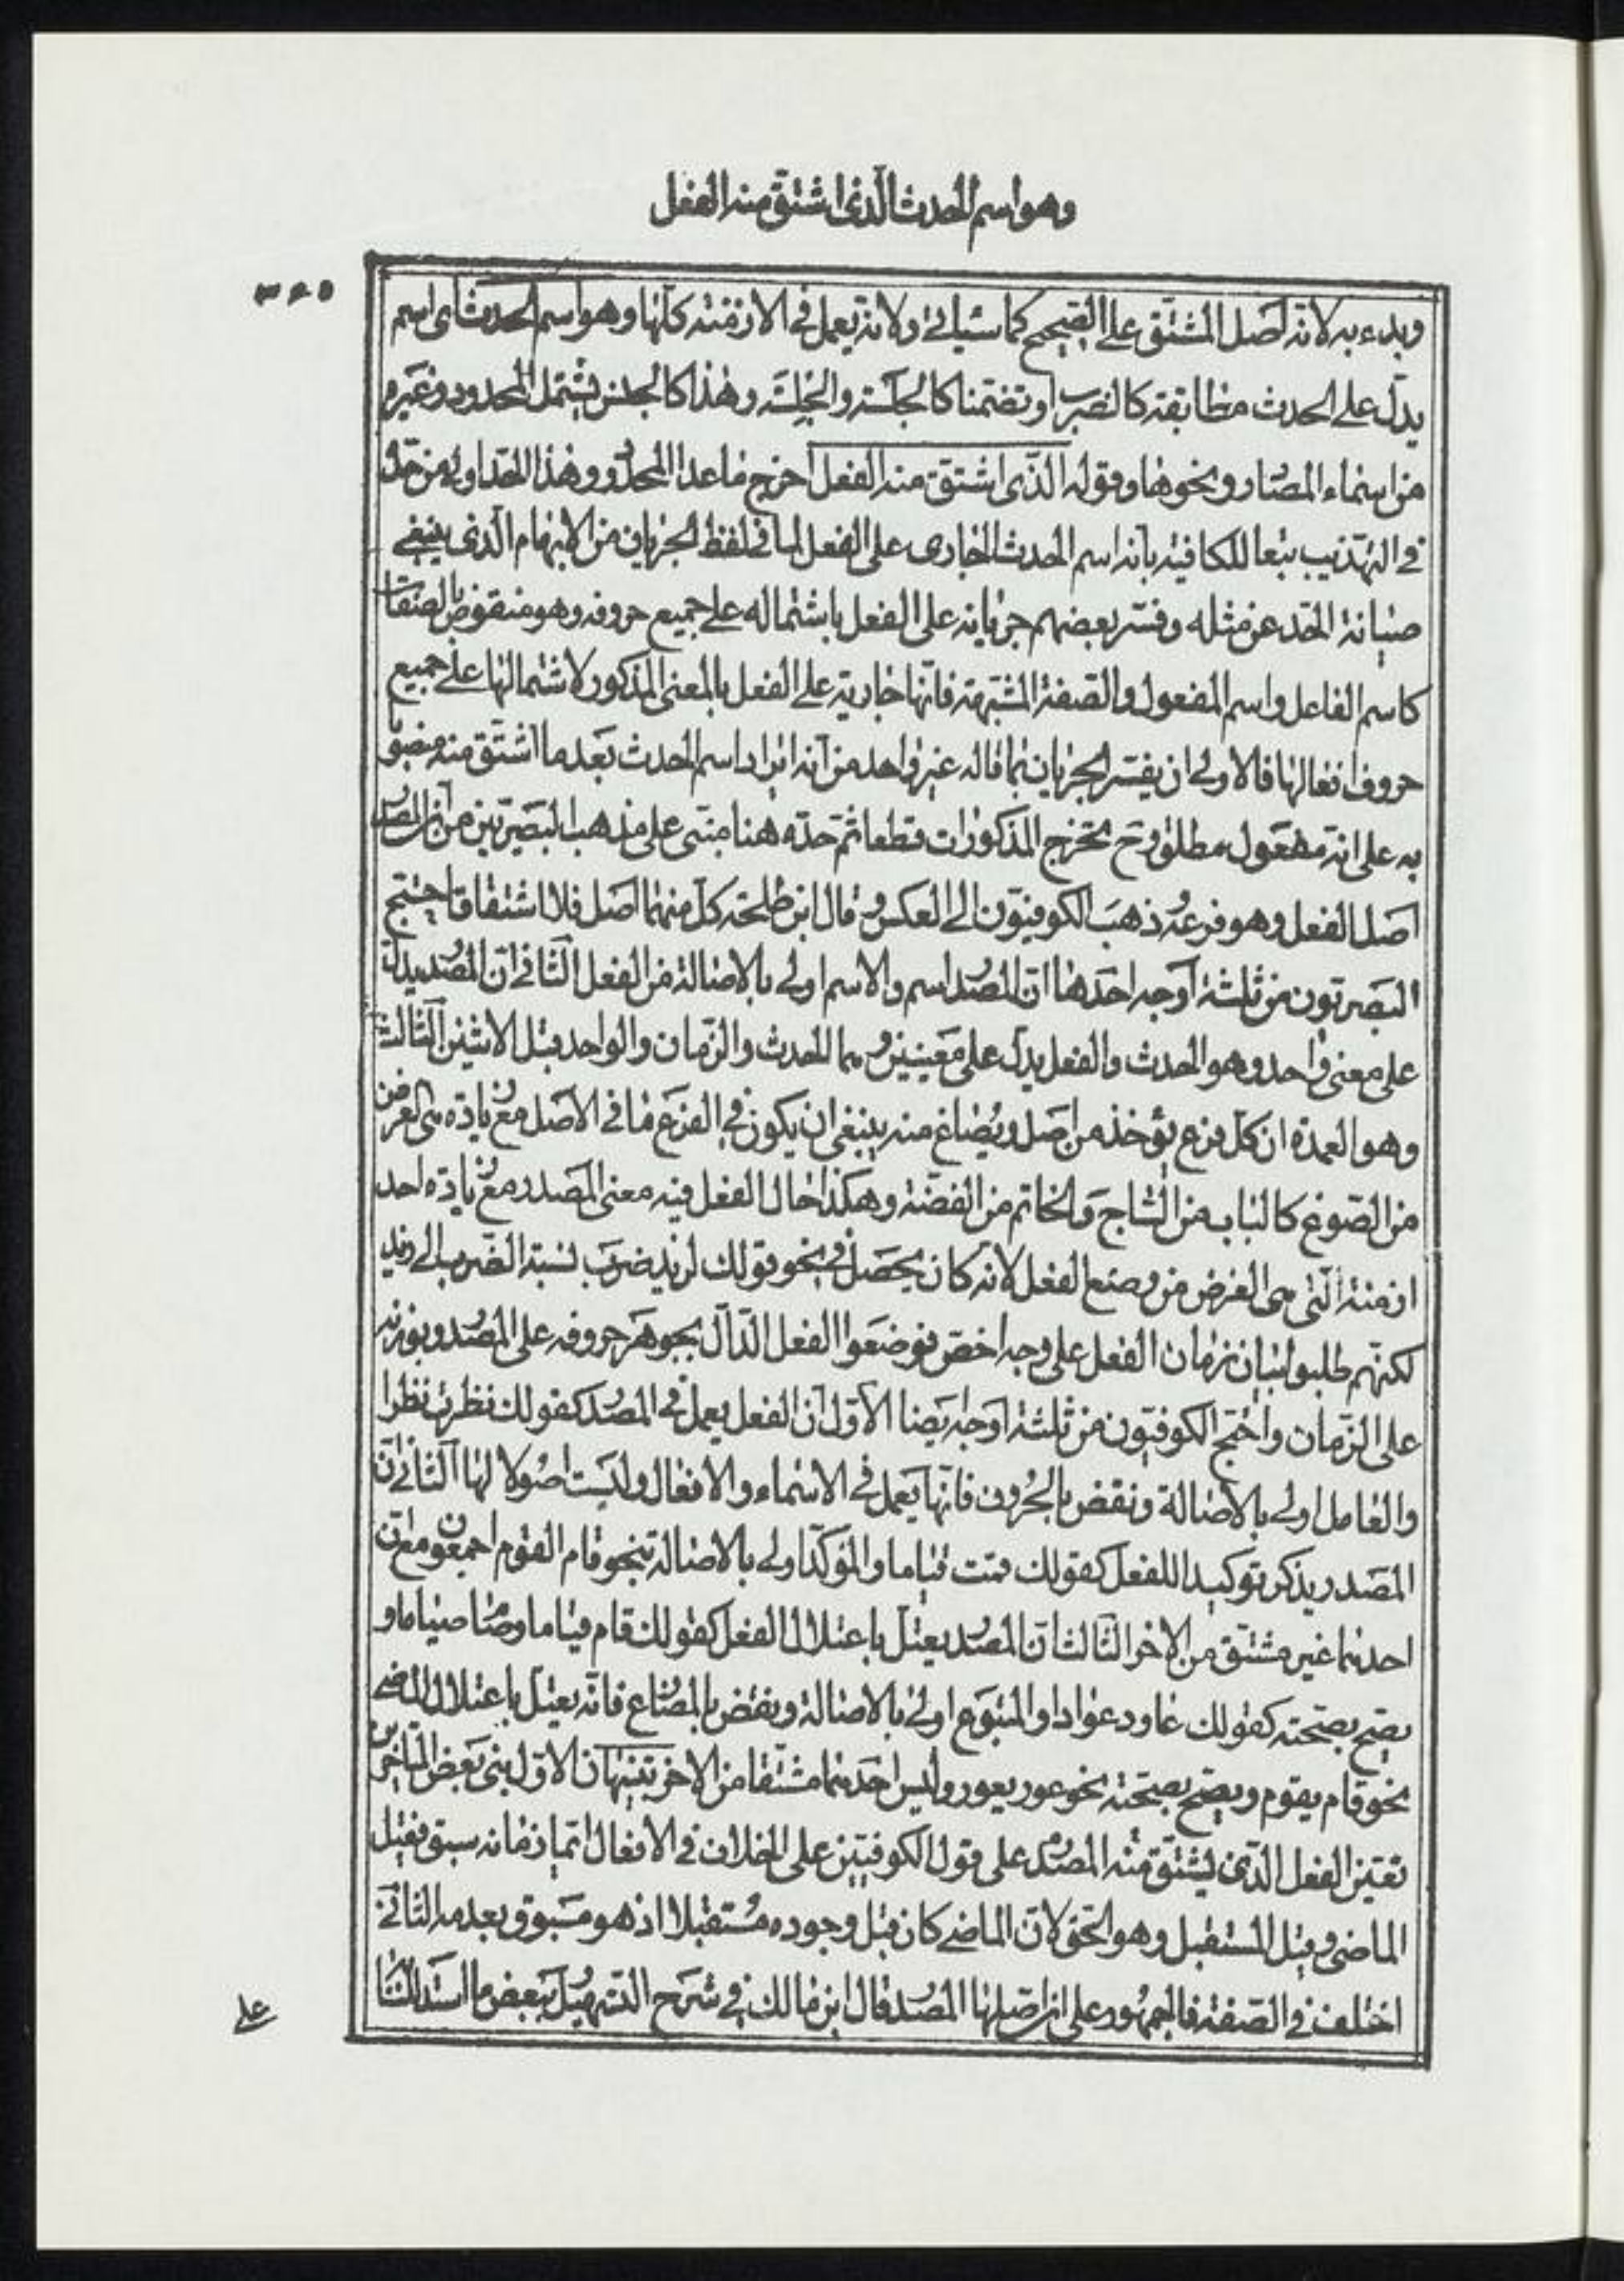 وهو اسم الحدث الذی اشتق منه الفعل
۳۶۵
وبدء به لانه اصل المشتق علی الصحیح کما سیاتی ولانه یعمل فی الازمنة کلها وهو اسم الحدث ای اسم
یدل علی الحدث مطابقة کالضرب او تضمنا کالجلسة والجلسة وهذا کالجنس یشتمل المحدود وغیره
من اسماء المصادر ونحوها وقوله الذی اشتق منه الفعل اخرج ما عدا المحدود وهذا الحد اولی من حده
فی التهذیب تبعا للکافیة بانه اسم الحدث الجاری علی الفعل لما فی لفظ الجریان من الابهام الذی ینبغی
صیانة الحد عن مثله وفسر بعضهم جریانه علی الفعل باشتماله علی جمیع حروفه وهو منقوض بالصفات
کاسم الفاعل واسم المفعول والصفة المشبهة فانها جاریة علی الفعل بالمعنی المذکور لاشتمالها علی جمیع
حروف افعالها فالاولی ان یفسر الجریان بما قاله غیر واحد من انه ایراد اسم الحدث بعد ما اشتق منه منصوبا
به علی انه مفعول مطلق وح تخرج المذکورات قطعا ثم حده هنا مبنی علی مذهب البصریین من ان المصدر
اصل الفعل وهو فرعه وذهب الکوفیون الی العکس وقال ابن طلحة کل منهما اصل فلا اشتقاق احتج
البصریون من ثلثة اوجه احدها ان المصدر اسم والاسم اولی بالاصالة من الفعل الثانی ان المصدر یدل
علی معنی واحد وهو الحدث والفعل یدل علی معنیین وهما الحدث والزمان والواحد قبل الاثنین الثالث
وهو العمدة ان کل فرع یؤخذ من اصل ویصاغ منه ینبغی ان یکون فی الفرع ما فی الاصل مع زیادة هی الغرض
من الصوغ کالباب من الساج والخاتم من الفضة وهکذا حال الفعل فیه معنی المصدر مع زیادة احد
ازمنة التی هی الغرض من وضع الفعل لانه کان یحصل فی نحو قولک لزید ضرب نسبة الضرب الی زید
لکنهم طلبوا بیان زمان الفعل علی وجه اخصر فوضعوا الفعل الدال بجوهر حروفه علی المصدر وبوزنه
علی الزمان واحتج الکوفیون من ثلثة اوجه ایضا الاول ان الفعل یعمل فی المصدر کقولک نظرت نظرا
والعامل اولی بالاصالة ونقض بالحروف فانها یعمل فی الاسماء والافعال ولیست اصولا لها الثانی ان
المصدر یذکر توکیدا للفعل کقولک قمت قیاما والمؤکد اولی بالاصالة بنحو قام القوم اجمعون مع ان
احدهما غیر مشتق من الاخر الثالث ان المصدر یعتل باعتلال الفعل کقولک قام قیاما وصام صیاما و
یصح بصحته کقولک عاود عوادا والمتبوع اولی بالاصالة ونقض بالمضارع فانه یعتل باعتلال الماضی
نحو قام یقوم ویصح بصحته نحو عور یعور ولیس احدهما مشتقا من الاخر تنبیهان الاول بنی بعض المتاخرین
تعیین الفعل الذی یشتق منه المصدر علی قول الکوفیین علی الخلاف فی الافعال ایما زمانه سبق فقیل
الماضی وقیل المستقبل وهو الحق لان الماضی کان قبل وجوده مستقبلا اذ هو مسبوق بعدمه الثانی
اختلف فی الصفة فالجمهور علی ان اصلها المصدر قال ابن مالک فی شرح التسهیل ببعض ما استدللنا
علی